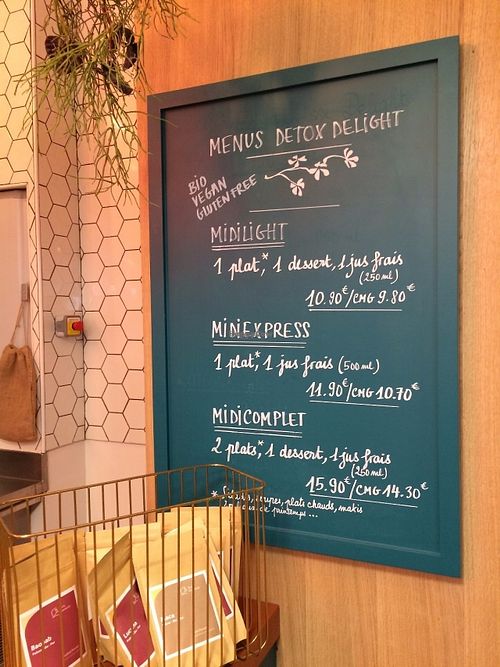 MENUS DETOX DELIGHT
BIO
VEGAN
GLUTENFREE
MIDILIGHT
1 plat,* 1 dessert, 1 jus frais
(250 ml)
10.90€/CMG 9.80€
MINIEXPRESS
1 plat,* 1 jus frais (500 ml)
11.90€/CMG 10.70€
MIDICOMPLET
2 plats,* 1 dessert, 1 jus frais
(250 ml)
15.90€/CMG 14.30€
* soupes, plats chauds, makis
de printemps ...
Baobab